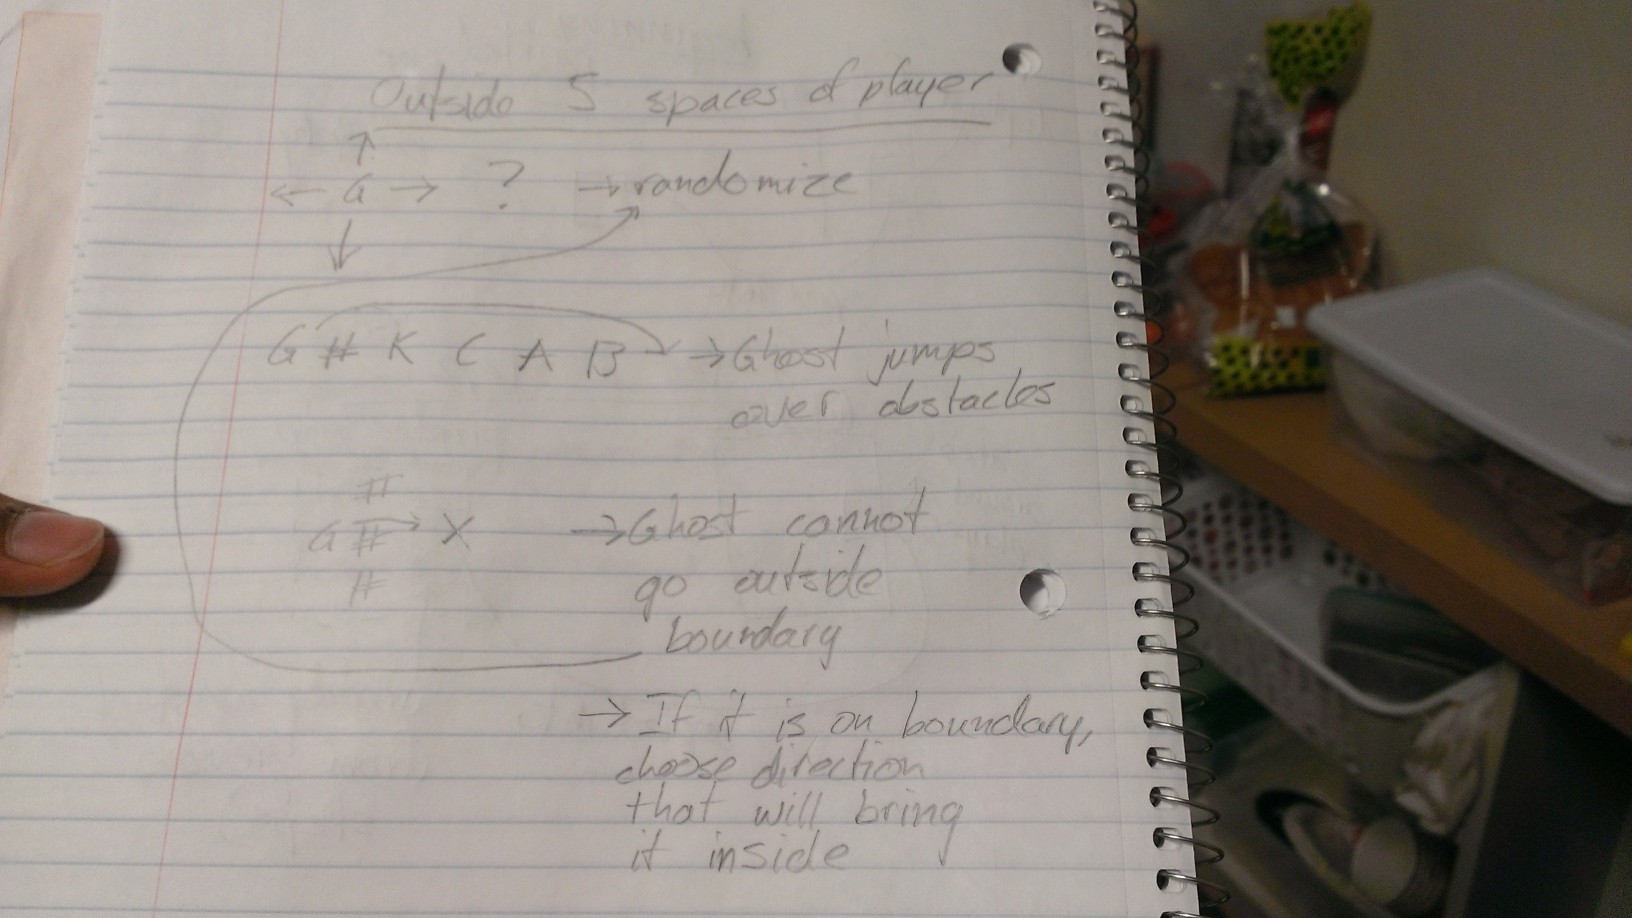 Outside 5 spaces of player
↑
← G → ? → randomize
↓
G # K C A B → Ghost jumps
over obstacles
#
G # → X → Ghost cannot
#
go outside
boundary
→ If it is on boundary,
choose direction
that will bring
it inside